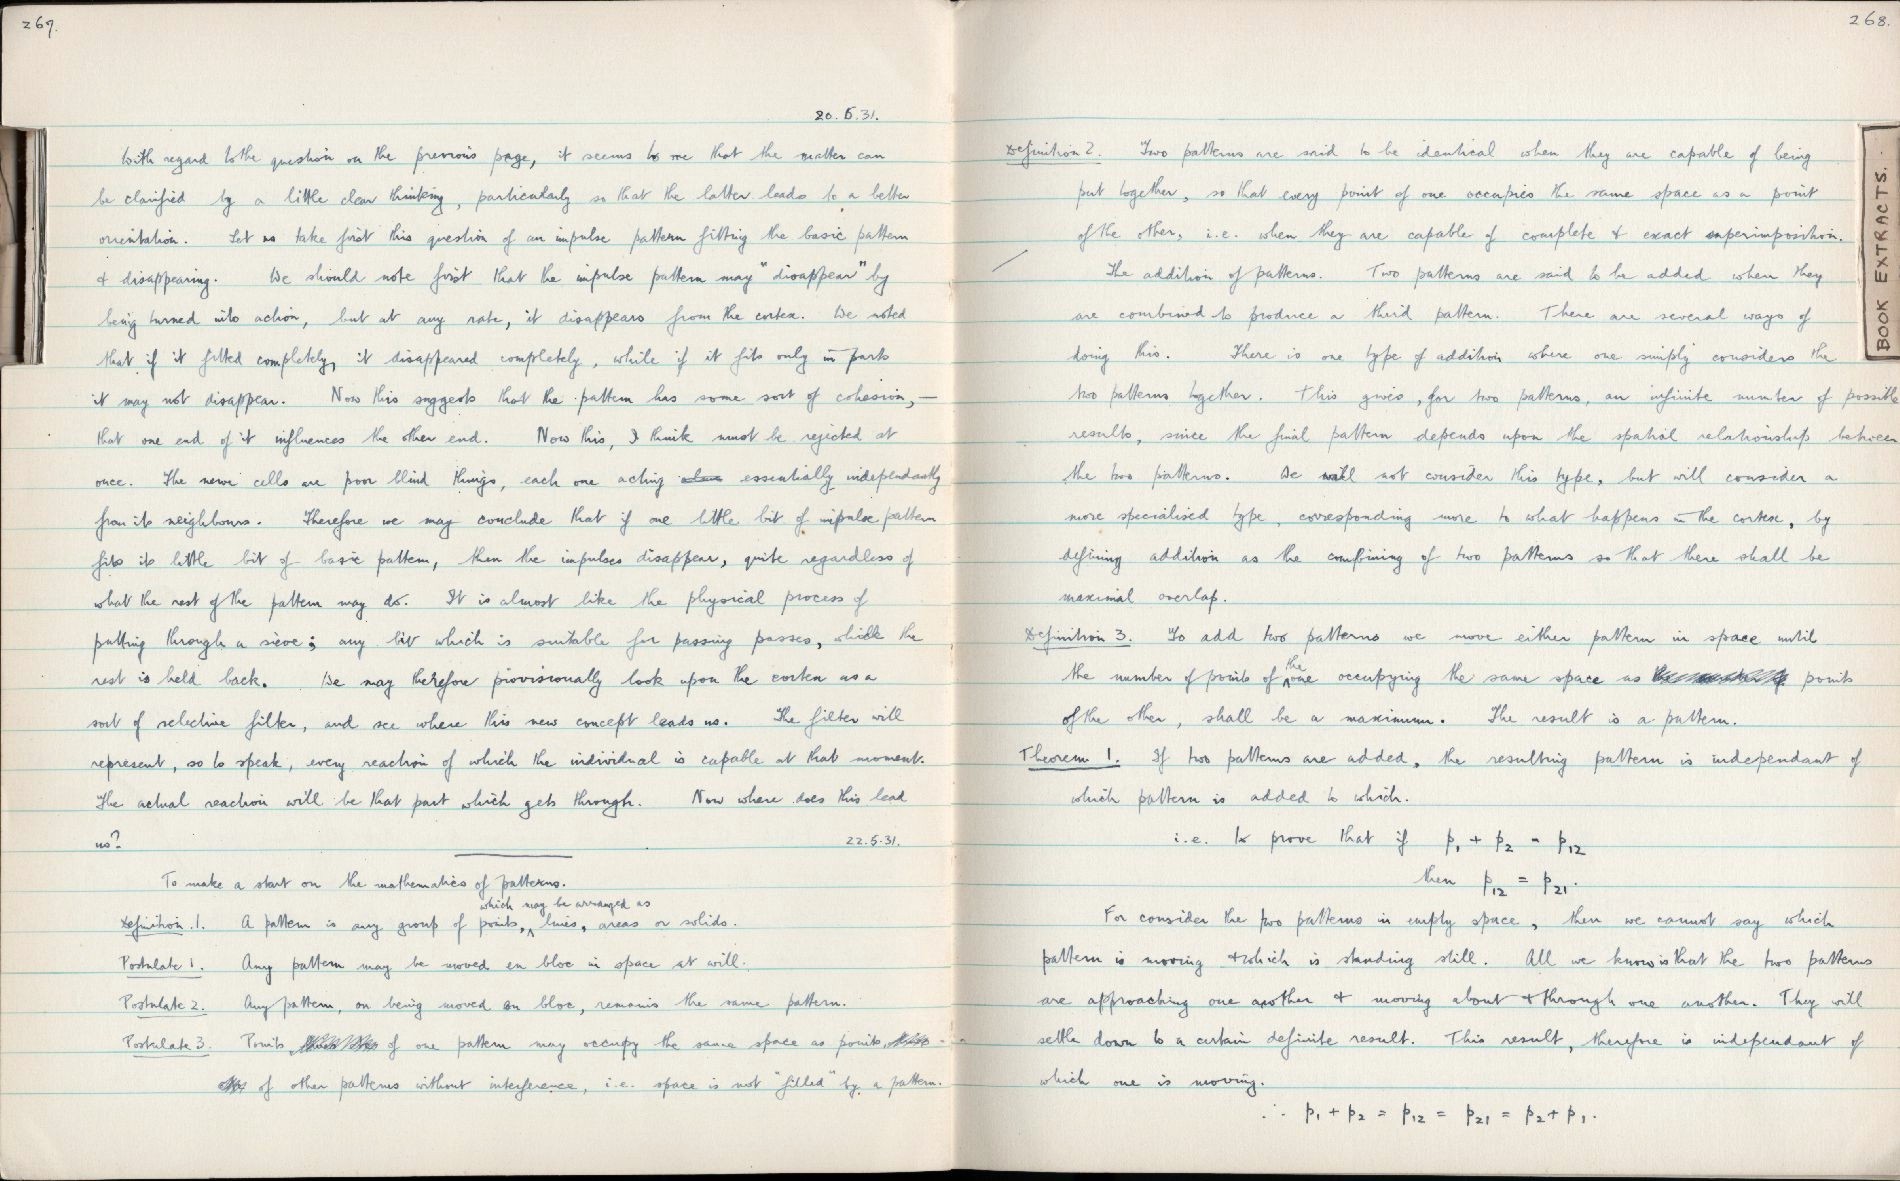 267.
20.5.31.
With regard to the question on the previous page, it seems to me that the matter can
be clarified by a little clear thinking, particularly so that the latter leads to a better
orientation. Let us take first this question of an impulse pattern fitting the basic pattern
& disappearing. We should note first that the impulse pattern may "disappear" by
being turned into action, but at any rate, it disappears from the cortex. We noted
that if it fitted completely, it disappeared completely, while if it fits only in parts
it may not disappear. Now this suggests that the pattern has some sort of cohesion, —
that one end of it influences the other end. Now this, I think must be rejected at
once. The nerve cells are poor blind things, each one acting alone essentially independantly
from its neighbours. Therefore we may conclude that if one little bit of impulse pattern
fits its little bit of basic pattern, then the impulses disappear, quite regardless of
what the rest of the pattern may do. It is almost like the physical process of
putting through a sieve; any bit which is suitable for passing passes, while the
rest is held back. We may therefore provisionally look upon the cortex as a
sort of selective filter, and see where this new concept leads us. The filter will
represent, so to speak, every reaction of which the individual is capable at that moment.
The actual reaction will be that part which gets through. Now where does this lead
us?
22.5.31.
To make a start on the mathematics of patterns.
which may be arranged as
Definition 1. A pattern is any group of points, lines, areas or solids.
Postulate 1. Any pattern may be moved en bloc in space at will.
Postulate 2. Any pattern, on being moved en bloc, remains the same pattern.
Postulate 3. Points of one pattern may occupy the same space as points
of other patterns without interference, i.e. space is not "filled" by a pattern.
268.
BOOK EXTRACTS.
Definition 2. Two patterns are said to be identical when they are capable of being
put together, so that every point of one occupies the same space as a point
of the other, i.e. when they are capable of complete & exact superimposition.
The addition of patterns. Two patterns are said to be added when they
are combined to produce a third pattern. There are several ways of
doing this. There is one type of addition where one simply considers the
two patterns together. This gives, for two patterns, an infinite number of possible
results, since the final pattern depends upon the spatial relationship between
the two patterns. We will not consider this type, but will consider a
more specialised type, corresponding more to what happens in the cortex, by
defining addition as the combining of two patterns so that there shall be
maximal overlap.
Definition 3. To add two patterns we move either pattern in space until
the number of points of the one occupying the same space as points
of the other, shall be a maximum. The result is a pattern.
Theorem 1. If two patterns are added, the resulting pattern is independant of
which pattern is added to which.
i.e. to prove that if p₁ + p₂ = p₁₂
then p₁₂ = p₂₁.
For consider the two patterns in empty space, then we cannot say which
pattern is moving & which is standing still. All we know is that the two patterns
are approaching one another & moving about & through one another. They will
settle down to a certain definite result. This result, therefore is independant of
which one is moving.
∴ p₁ + p₂ = p₁₂ = p₂₁ = p₂ + p₁.